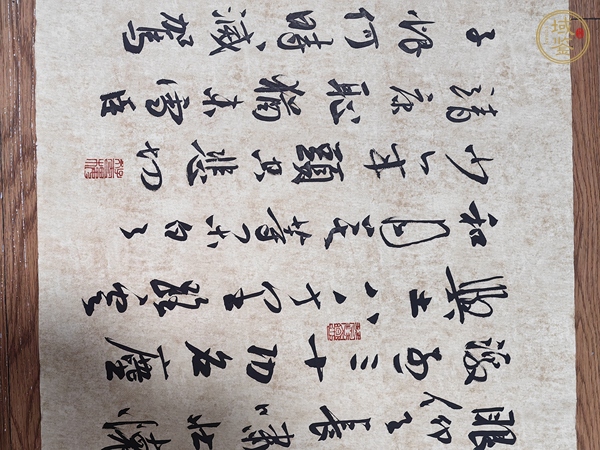 眼仰天長嘯壯懷
激烈三十功名塵
與土八千里路雲
和月莫等閒白了
少年頭空悲切
靖康恥猶未雪臣
子恨何時滅駕